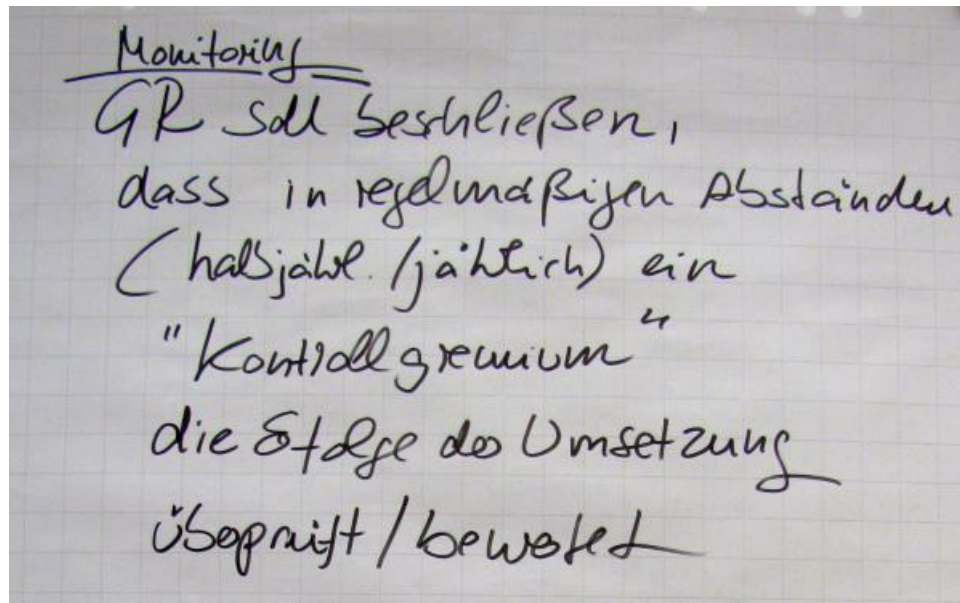 Monitoring
GR soll beschließen,
dass in regelmäßigen Abständen
( halbjährl. /jährlich) ein
"Kontrollgremium"
die Erfolge der Umsetzung
überprüft / bewertet